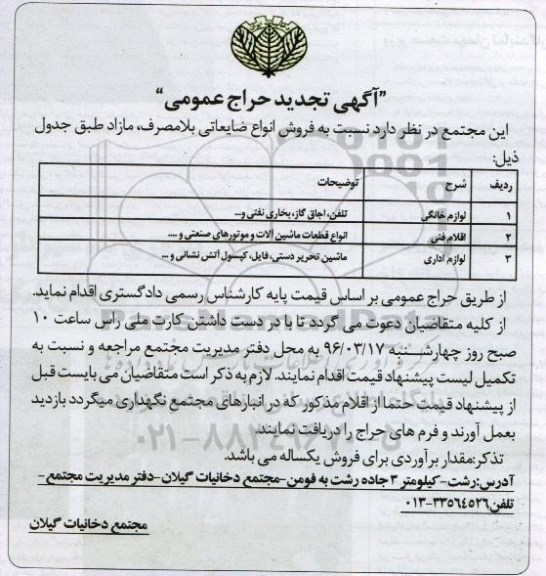 ”آگهی تجدید حراج عمومی“
این مجتمع در نظر دارد نسبت به فروش انواع ضایعاتی بلامصرف، مازاد طبق جدول
ذیل:
ردیف شرح توضیحات
۱ لوازم خانگی تلفن، اجاق گاز، بخاری نفتی و...
۲ اقلام فنی انواع قطعات ماشین آلات و موتورهای صنعتی و ....
۳ لوازم اداری ماشین تحریر دستی، فایل، کپسول آتش نشانی و ...
از طریق حراج عمومی بر اساس قیمت پایه کارشناس رسمی دادگستری اقدام نماید.
از کلیه متقاضیان دعوت می گردد تا با در دست داشتن کارت ملی راس ساعت ۱۰
صبح روز چهارشنبه ۹۶/۰۳/۱۷ به محل دفتر مدیریت مجتمع مراجعه و نسبت به
تکمیل لیست پیشنهاد قیمت اقدام نمایند. لازم به ذکر است متقاضیان می بایست قبل
از پیشنهاد قیمت حتما از اقلام مذکور که در انبارهای مجتمع نگهداری میگردد بازدید
بعمل آورند و فرم های حراج را دریافت نمایند.
تذکر:مقدار برآوردی برای فروش یکساله می باشد.
آدرس:رشت-کیلومتر ۳ جاده رشت به فومن-مجتمع دخانیات گیلان-دفتر مدیریت مجتمع-
تلفن ۳۳۵۶۴۵۲۶-۰۱۳
مجتمع دخانیات گیلان